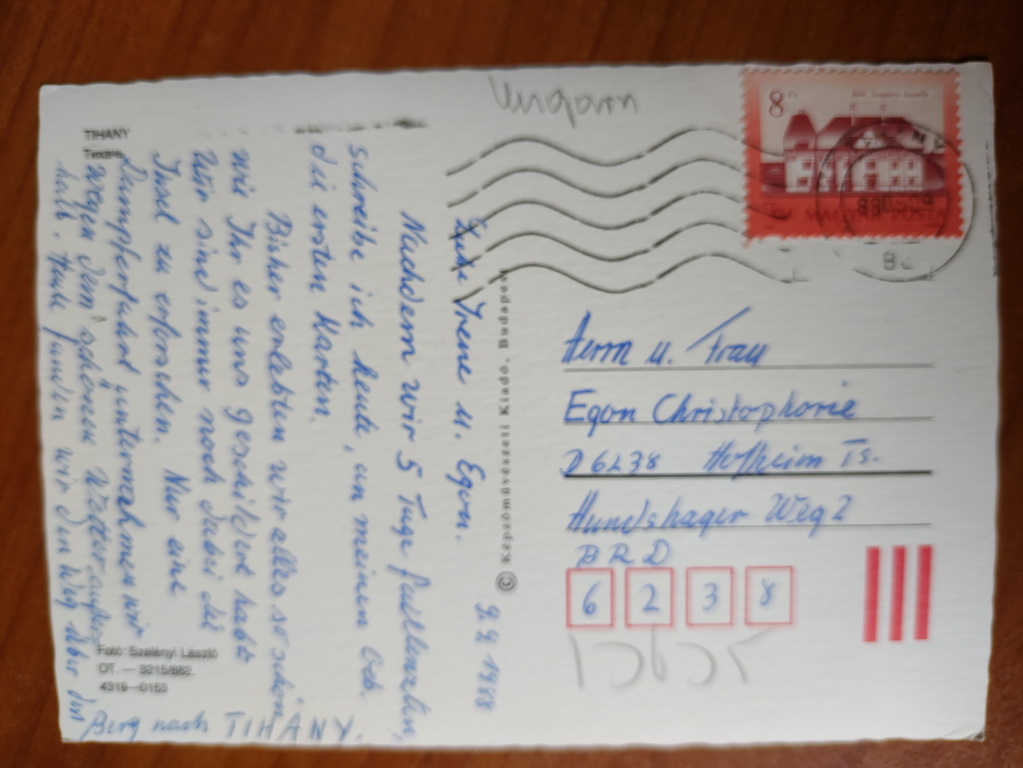 TIHANY
Тихань
9.9.1988
Liebe Irene u. Egon.
Nachdem wir 5 Tage faullenzten,
schreibe ich heute, an meinem Geb.
die ersten Karten.
Bisher erlebten wir alles so schön
wie Ihr es uns geschildert habt
Wir sind immer noch dabei die
Insel zu erforschen. Nur eine
Dampferfahrt unternahmen wir
wegen dem schönen Wetter außer
halb. Heute fanden wir den Weg über den
Berg nach TIHANY.
Foto: Szelényi László
OT. — 3215/882.
4319—0153
© Képzőművészeti Kiadó, Budapest
Ungarn
8 Ft
MAGYAR POSTA
Herrn u. Frau
Egon Christophorie
D 6238 Hofheim Ts.
Hundshager Weg 2
BRD
6 2 3 8